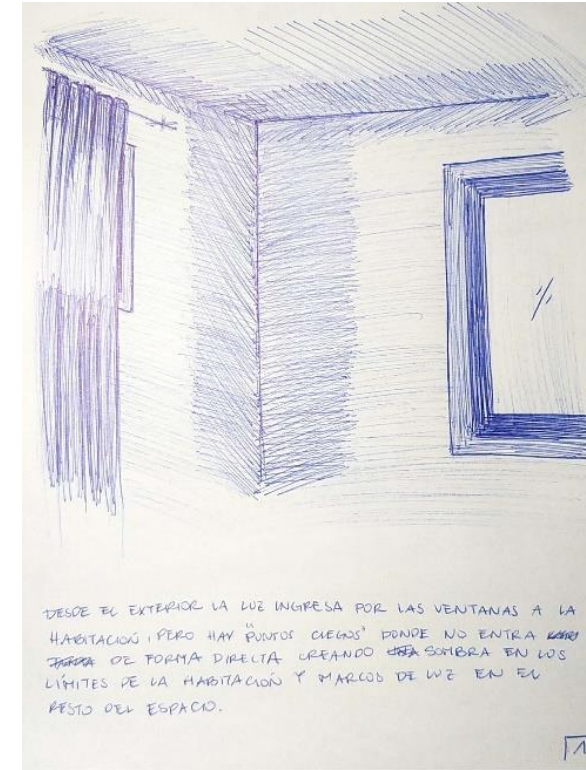 DESDE EL EXTERIOR LA LUZ INGRESA POR LAS VENTANAS A LA
HABITACIÓN, PERO HAY "PUNTOS CIEGOS" DONDE NO ENTRA
DE FORMA DIRECTA CREANDO SOMBRA EN LOS
LÍMITES DE LA HABITACIÓN Y MARCOS DE LUZ EN EL
RESTO DEL ESPACIO.
1